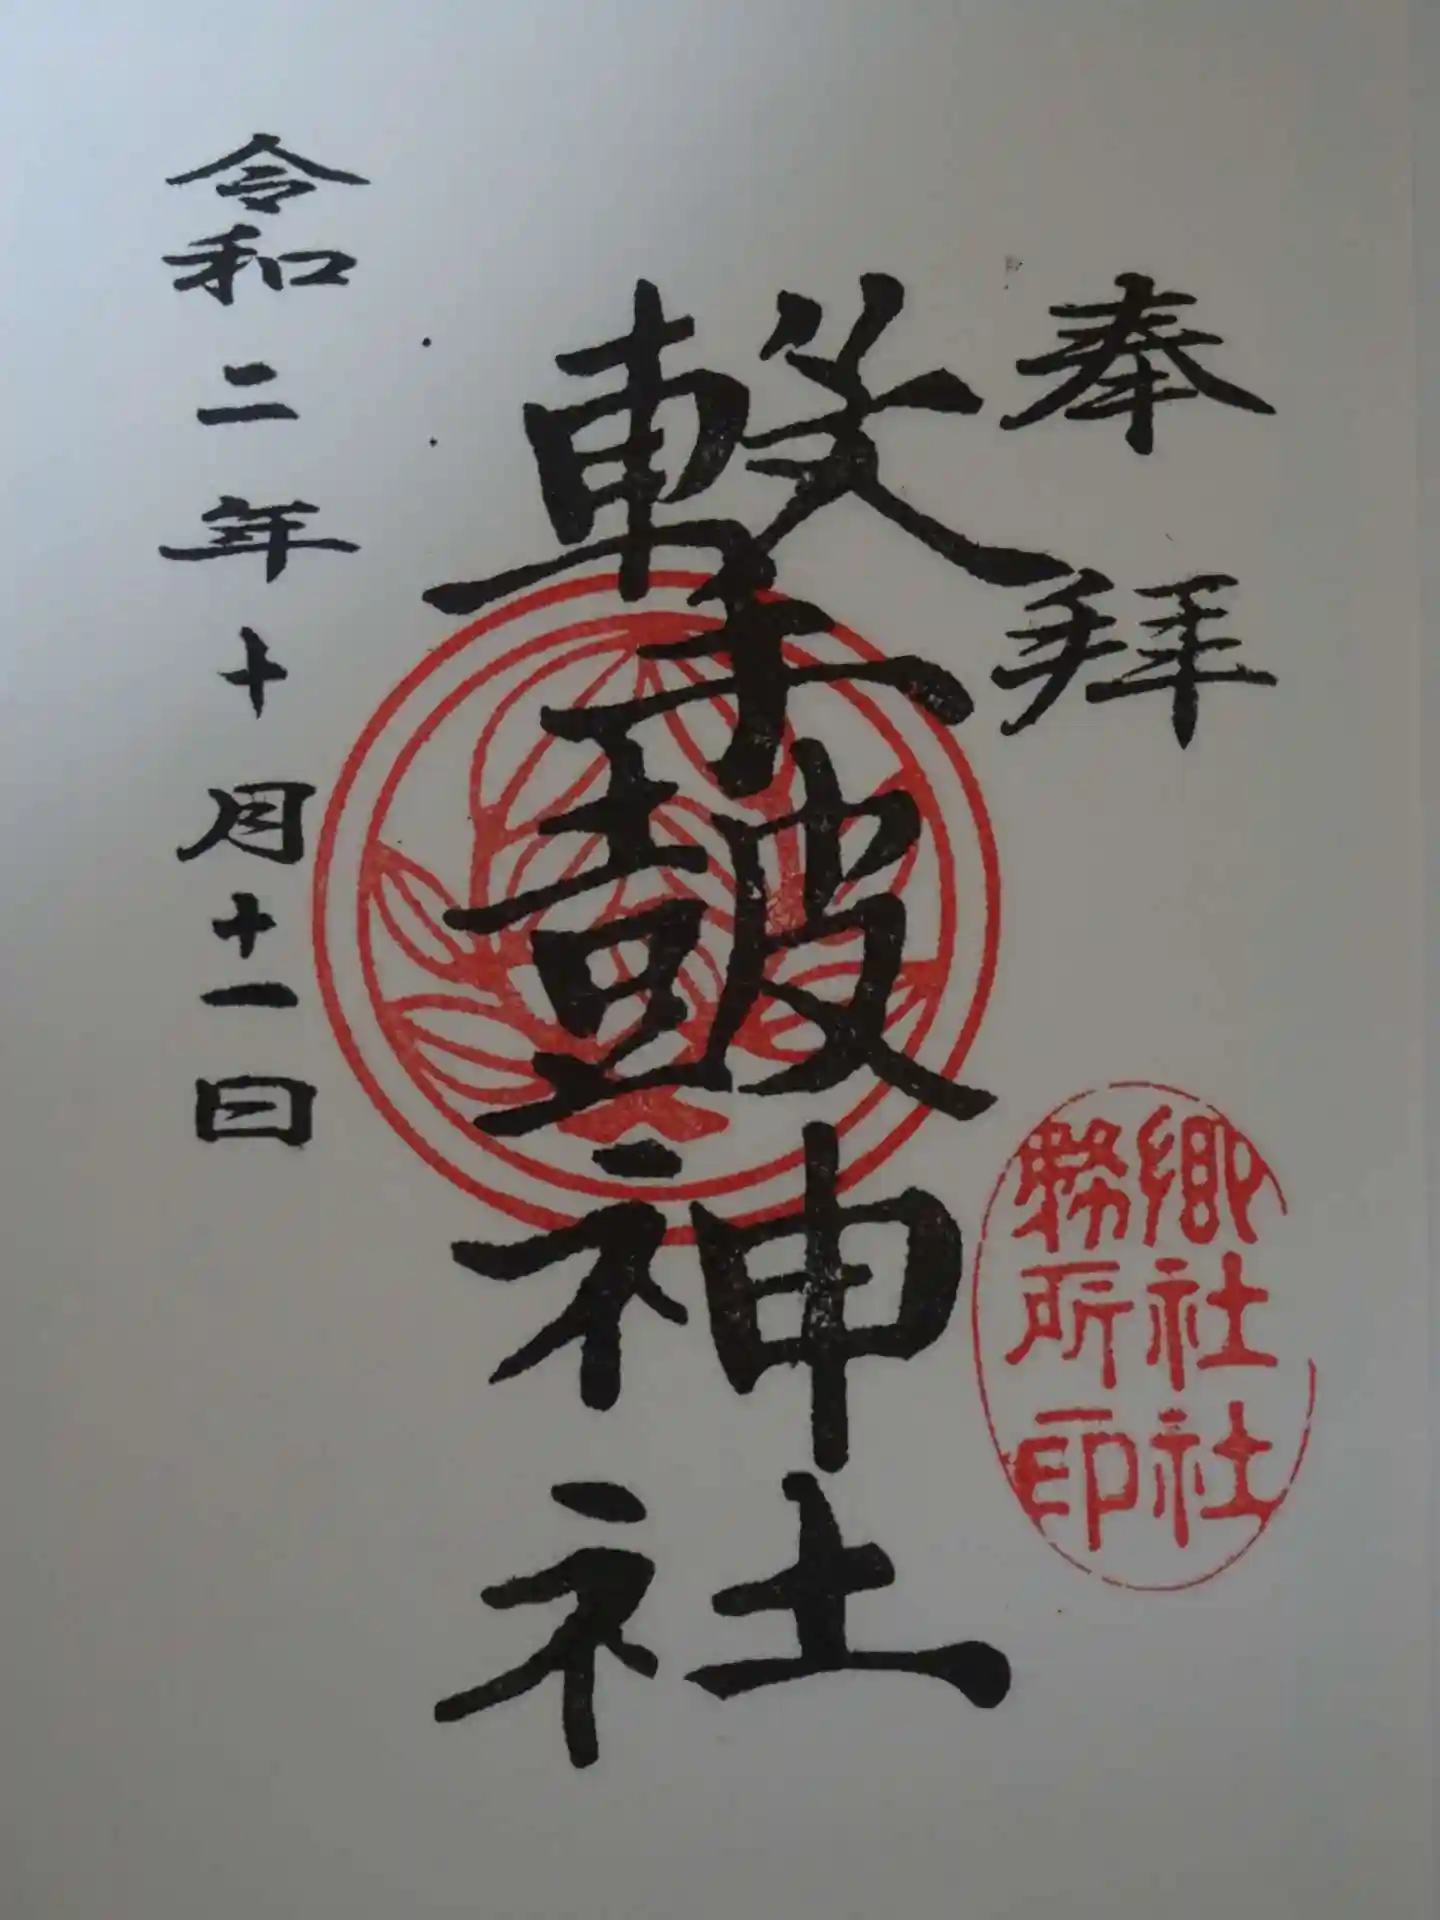 奉拜
撃鼓神社
令和二年十月十一日
郷社社
務所印